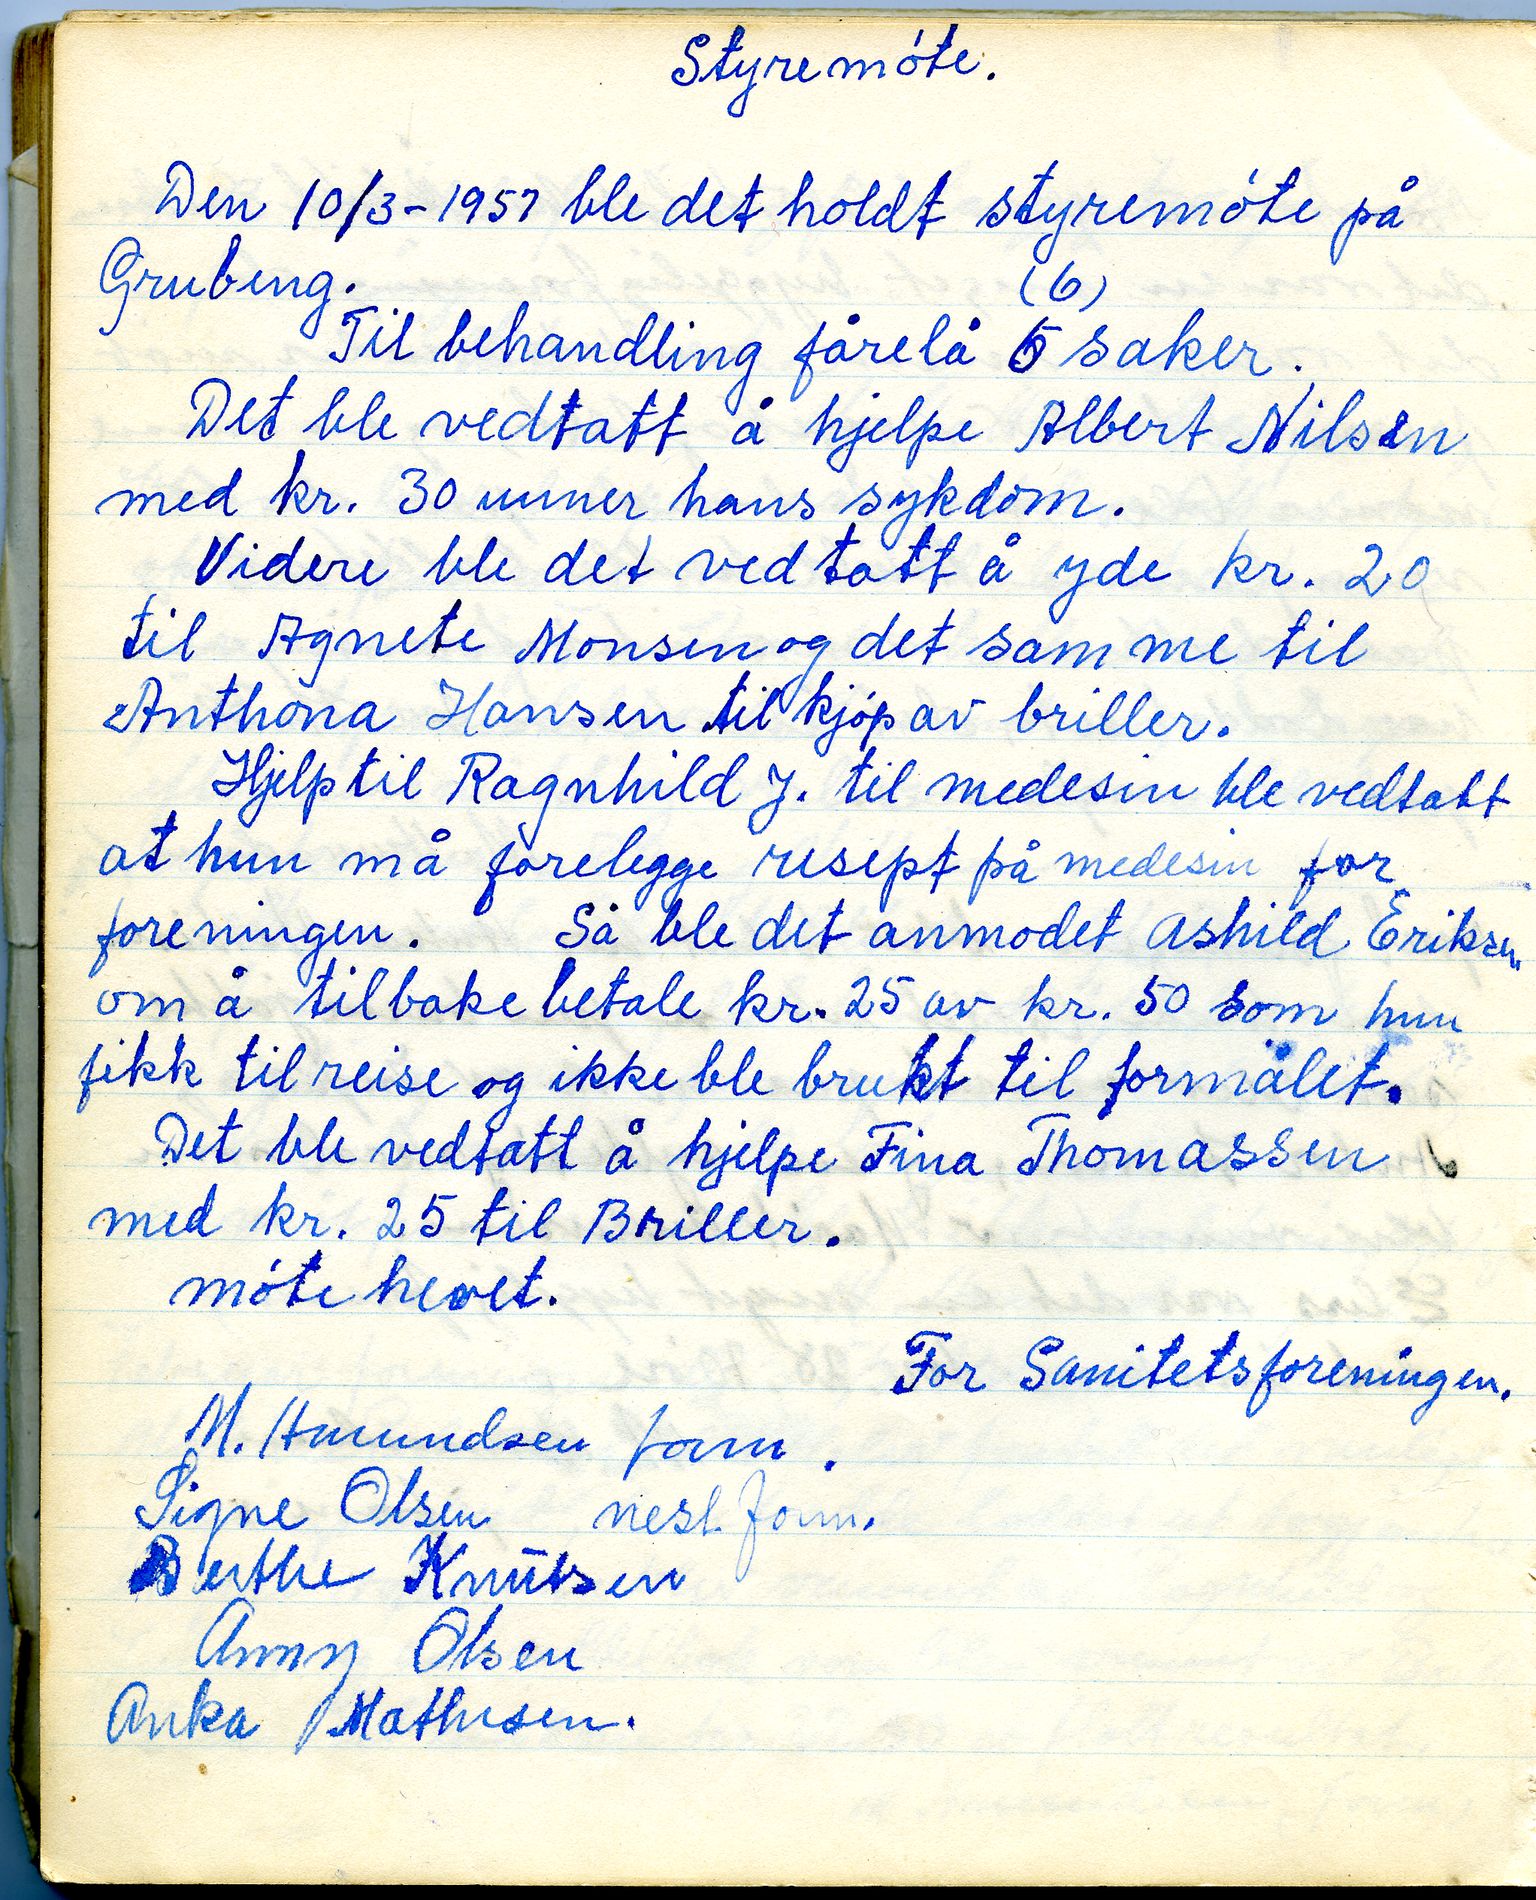 Styremóte.
Den 10/3-1957 ble det holdt styremóte på
Grubeng.
(6)
Til behandling fårelå 5 saker.
Det ble vedtatt å hjelpe Albert Nilsen
med kr. 30 unner hans sykdom.
Videre ble det vedtatt å yde kr. 20
til Agnete Monsen og det samme til
Anthona Hansen til kjóp av briller.
Hjelp til Ragnhild J. til medesin ble vedtatt
at hun må forelegge resept på medesin for
foreningen. Så ble det anmodet Ashild Eriksen
om å tilbakebetale kr. 25 av kr. 50 som hun
fikk til reise og ikke ble brukt til formålet.
Det ble vedtatt å hjelpe Fina Thomassen
med kr. 25 til Briller.
móte hevet.
For Sanitetsforeningen.
M. Amundsen form.
Signe Olsen nest. form.
Berthe Knutsen
Anny Olsen
Anka Mathisen.